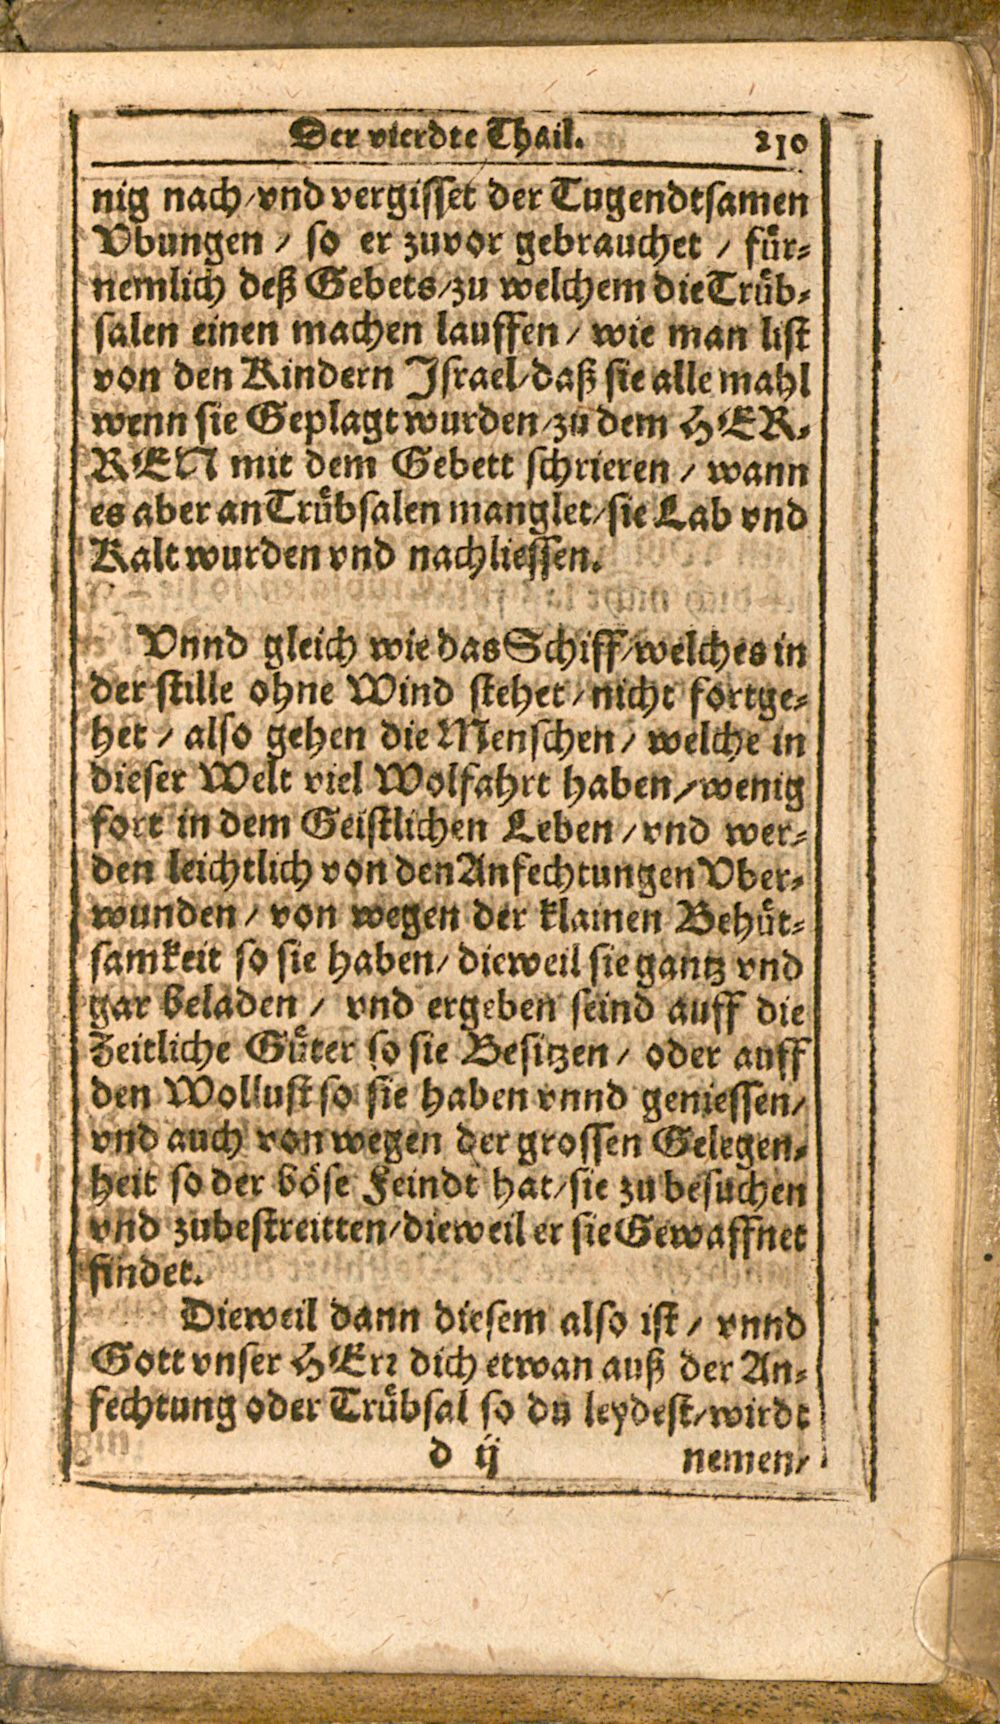 Der vierdte Thail. 210
nig nach/vnd vergisset der Tugendtsamen
Vbungen / so er zuvor gebrauchet / fuͤr⸗
nemlich deß Gebets/zu welchem die Truͤb⸗
salen einen machen lauffen / wie man list
von den Kindern Israel/daß sie alle mahl
wenn sie Geplagt wurden/zu dem HER⸗
REN mit dem Gebett schrieren / wann
es aber an Truͤbsalen manglet/sie Lab vnd
Kalt wurden vnd nachliessen.
Vnnd gleich wie das Schiff/welches in
der stille ohne Wind stehet/nicht fortge⸗
het / also gehen die Menschen / welche in
dieser Welt viel Wolfahrt haben/wenig
fort in dem Geistlichen Leben / vnd wer⸗
den leichtlich von den Anfechtungen Vber⸗
wunden / von wegen der klainen Behuͤt⸗
samkeit so sie haben/ dieweil sie gantz vnd
gar beladen / vnd ergeben seind auff die
Zeitliche Guͤter so sie Besitzen / oder auff
den Wollust so sie haben vnnd geniessen/
vnd auch von wegen der grossen Gelegen⸗
heit so der boͤse Feindt hat/sie zu besuchen
vnd zubestreitten/dieweil er sie Gewaffnet
findet.
Dieweil dann diesem also ist / vnnd
Gott vnser HErr dich etwan auß der An⸗
fechtung oder Truͤbsal so du leydest/wirdt
d ij nemen/